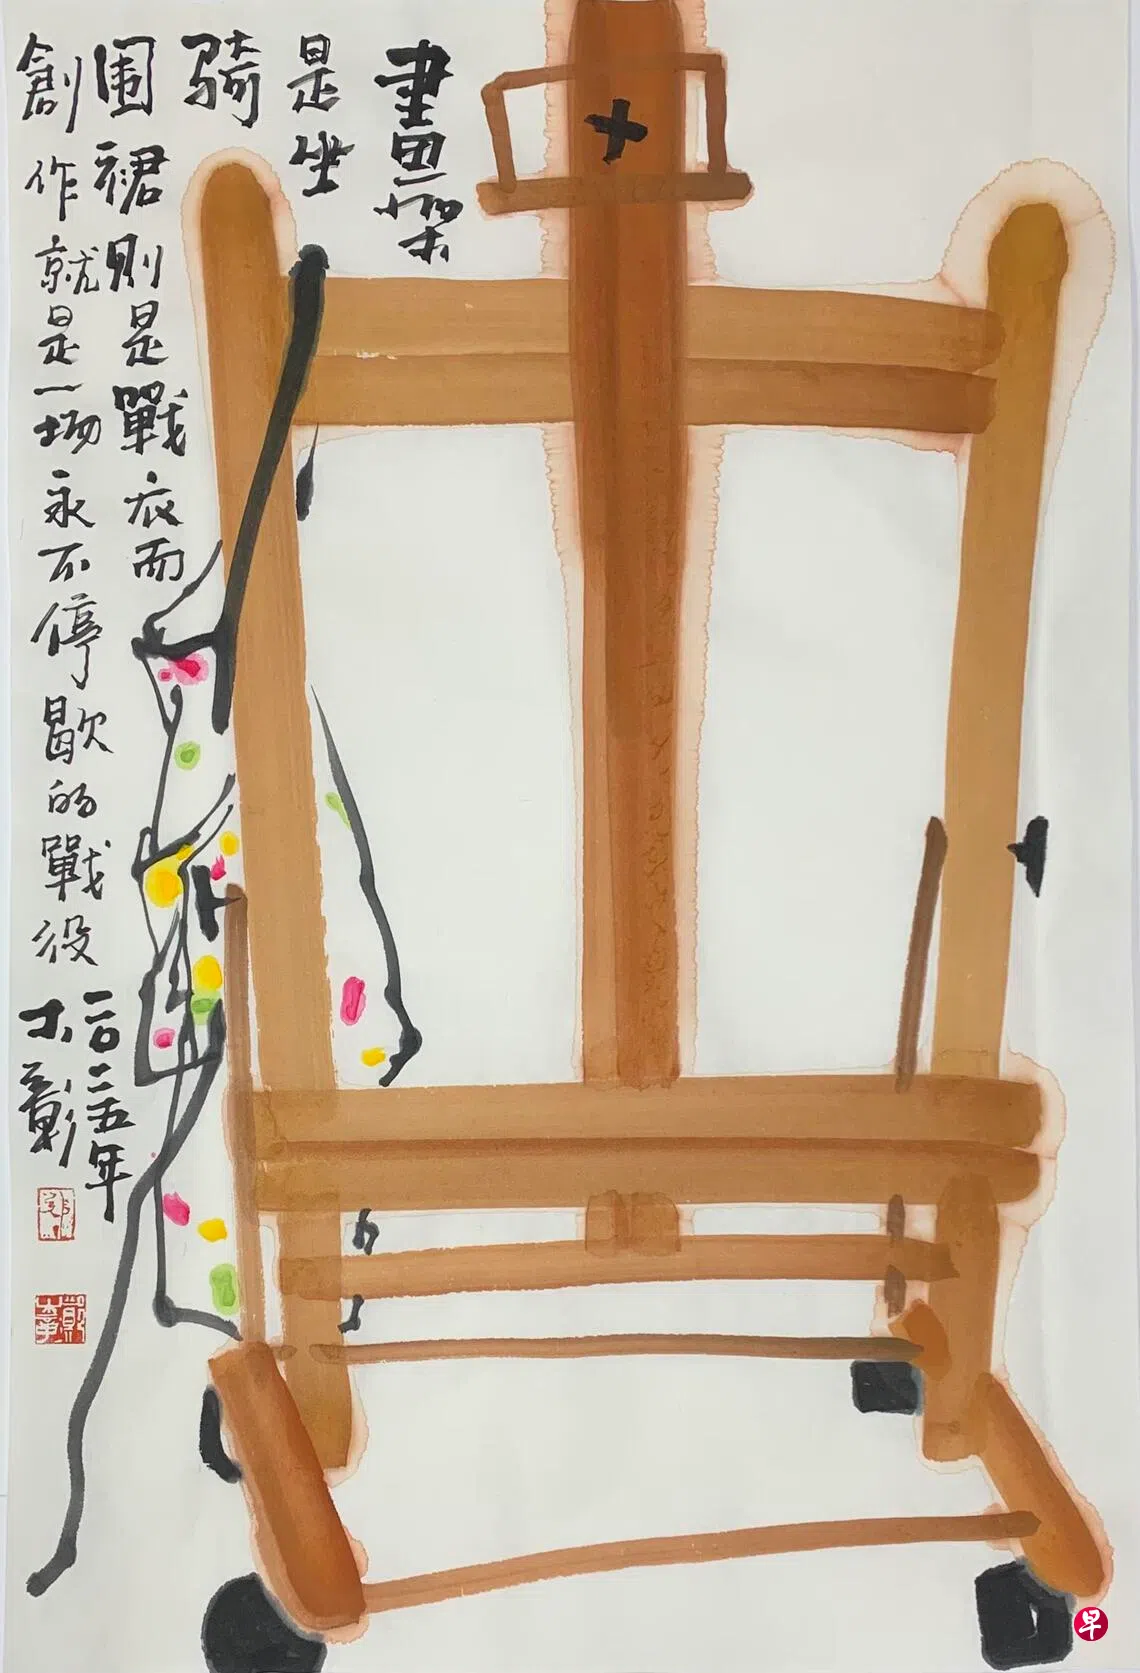 畫架
是坐
骑
围裙则是戰衣而
創作就是一场永不停歇的戰役
二〇二五年
木彰
早